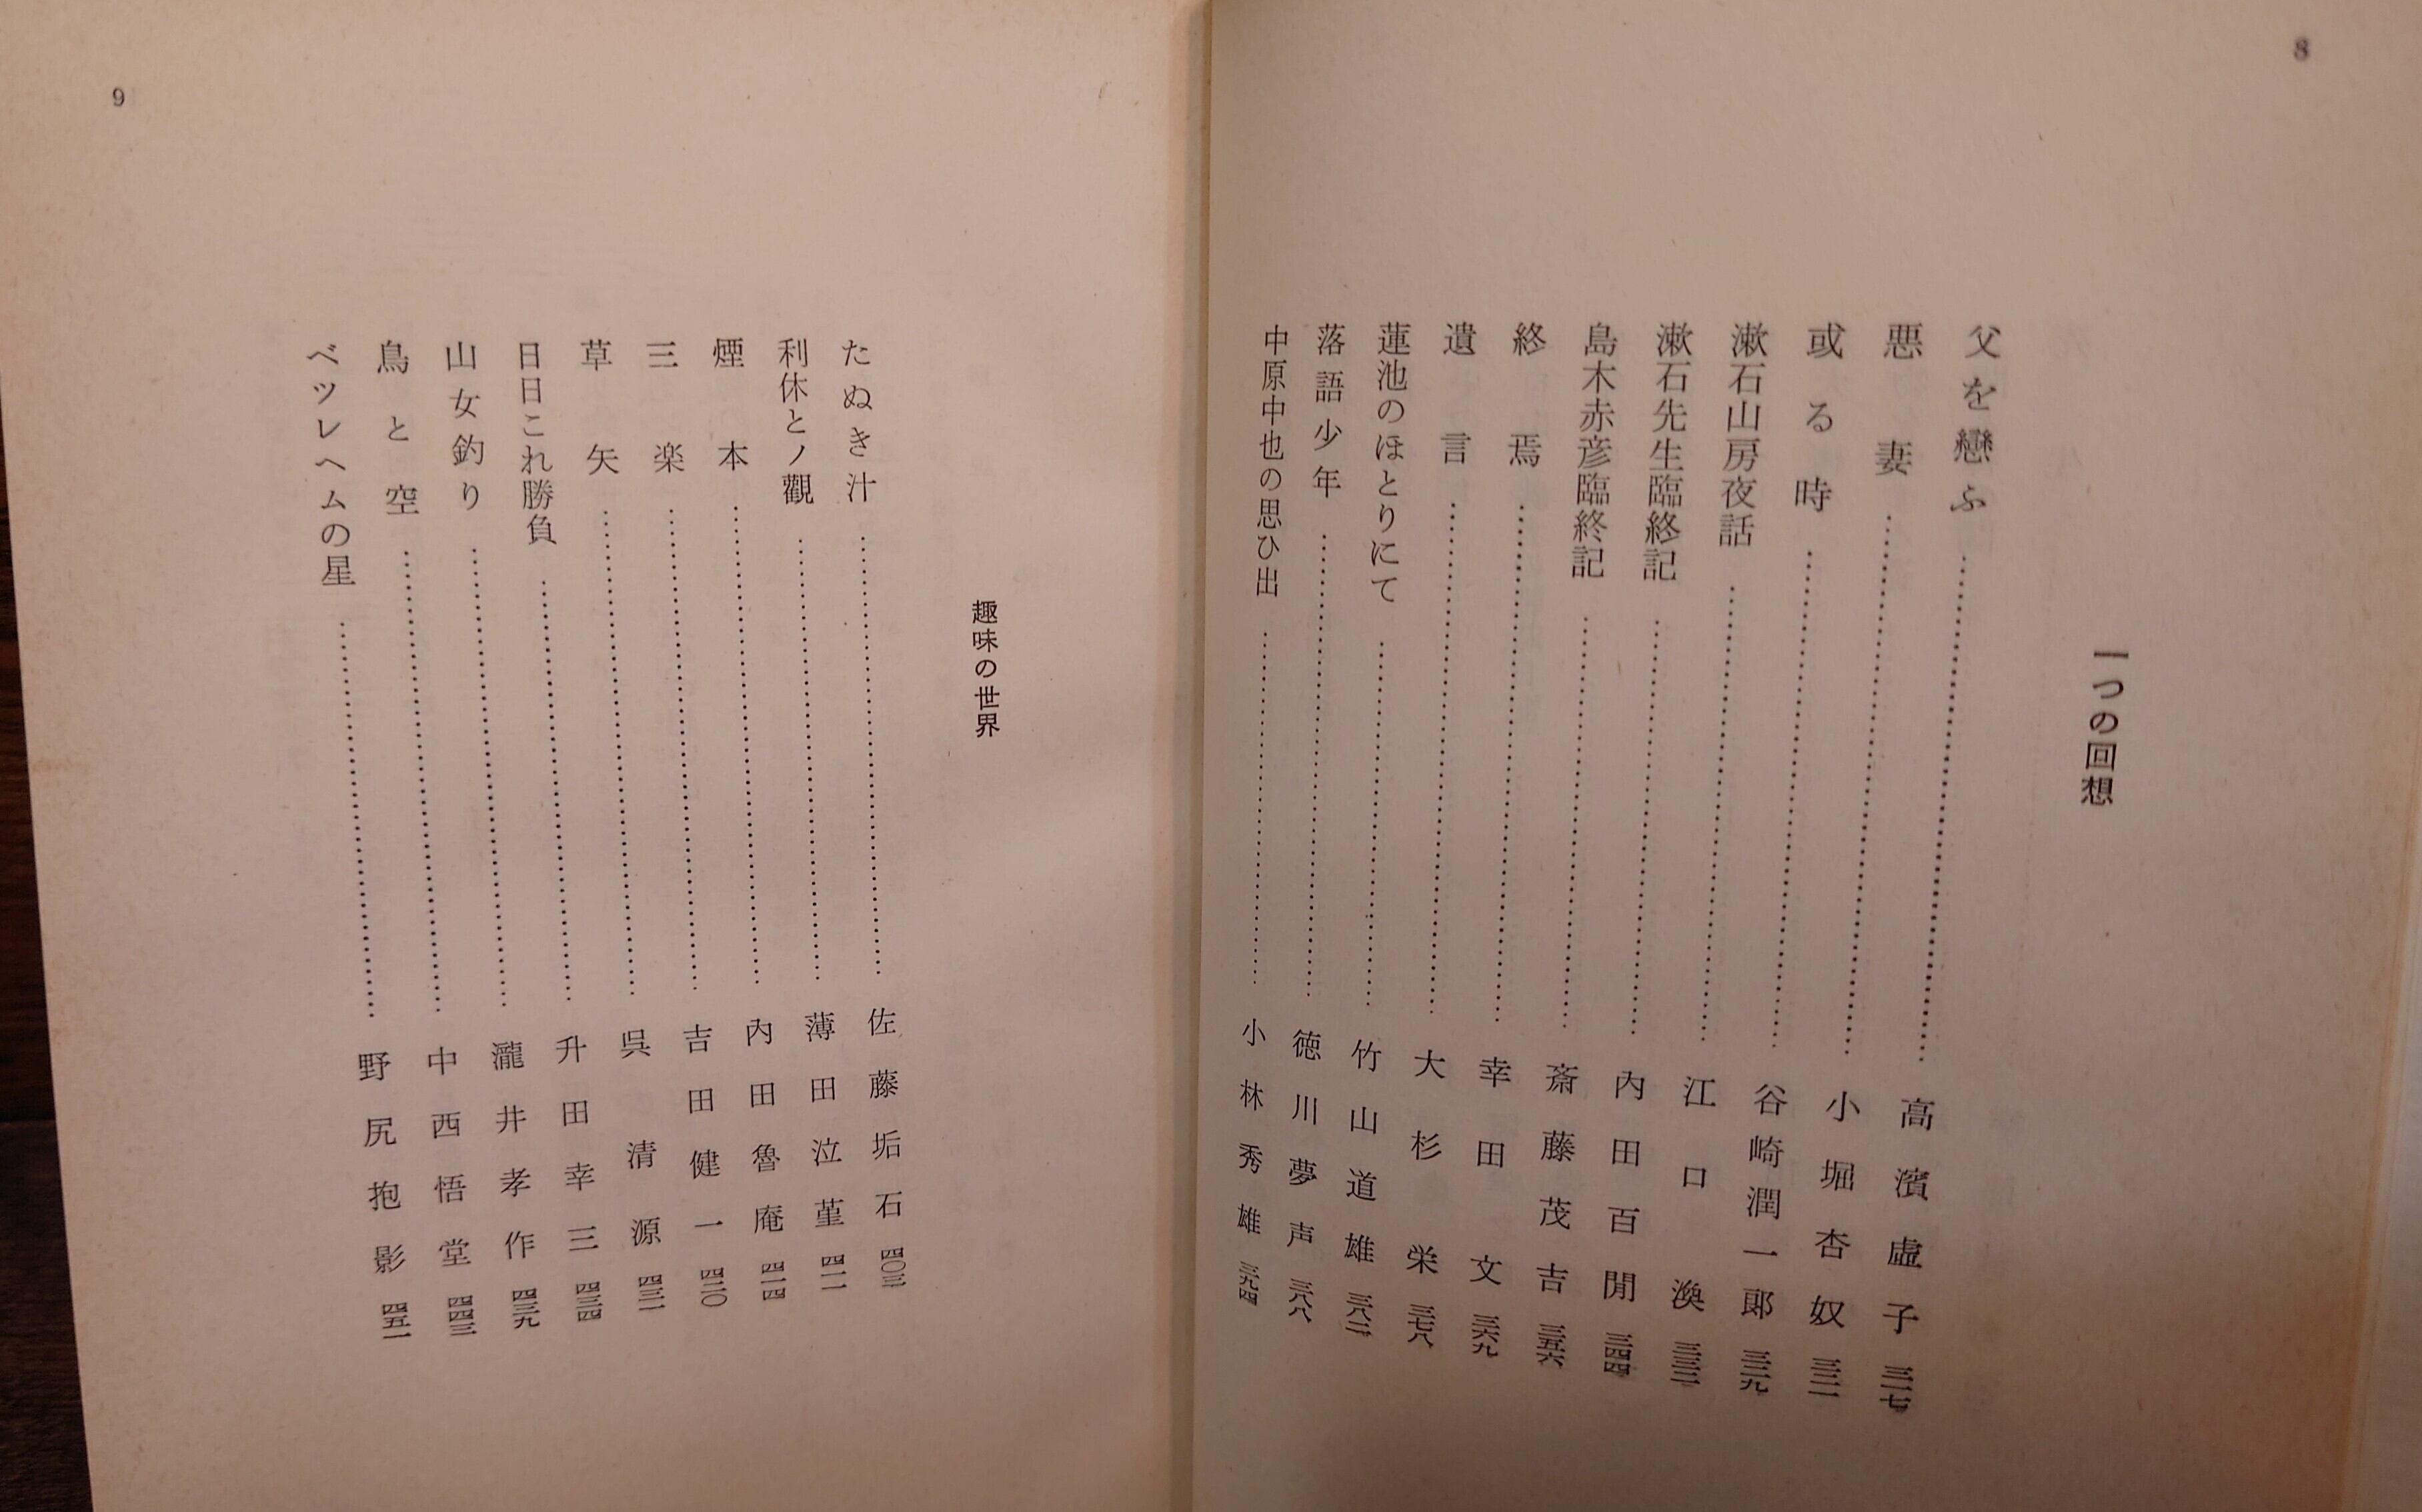 8
一つの回想
父を戀ふ……高濱虚子 三一七
悪妻……小堀杏奴 三二一
或る時……谷崎潤一郎 三二九
漱石山房夜話……江口渙 三三二
漱石先生臨終記……内田百閒 三四四
島木赤彦臨終記……斎藤茂吉 三五六
終焉……幸田文 三六九
遺言……大杉栄 三七八
蓮池のほとりにて……竹山道雄 三八二
落語少年……徳川夢声 三八八
中原中也の思ひ出……小林秀雄 三九四
趣味の世界
たぬき汁……佐藤垢石 四〇三
利休とノ觀……薄田泣菫 四一一
煙本……内田魯庵 四一四
三楽……吉田健一 四二〇
草矢……呉清源 四三一
日日これ勝負……升田幸三 四三四
山女釣り……瀧井孝作 四三九
鳥と空……中西悟堂 四四三
ベツレヘムの星……野尻抱影 四五一
9